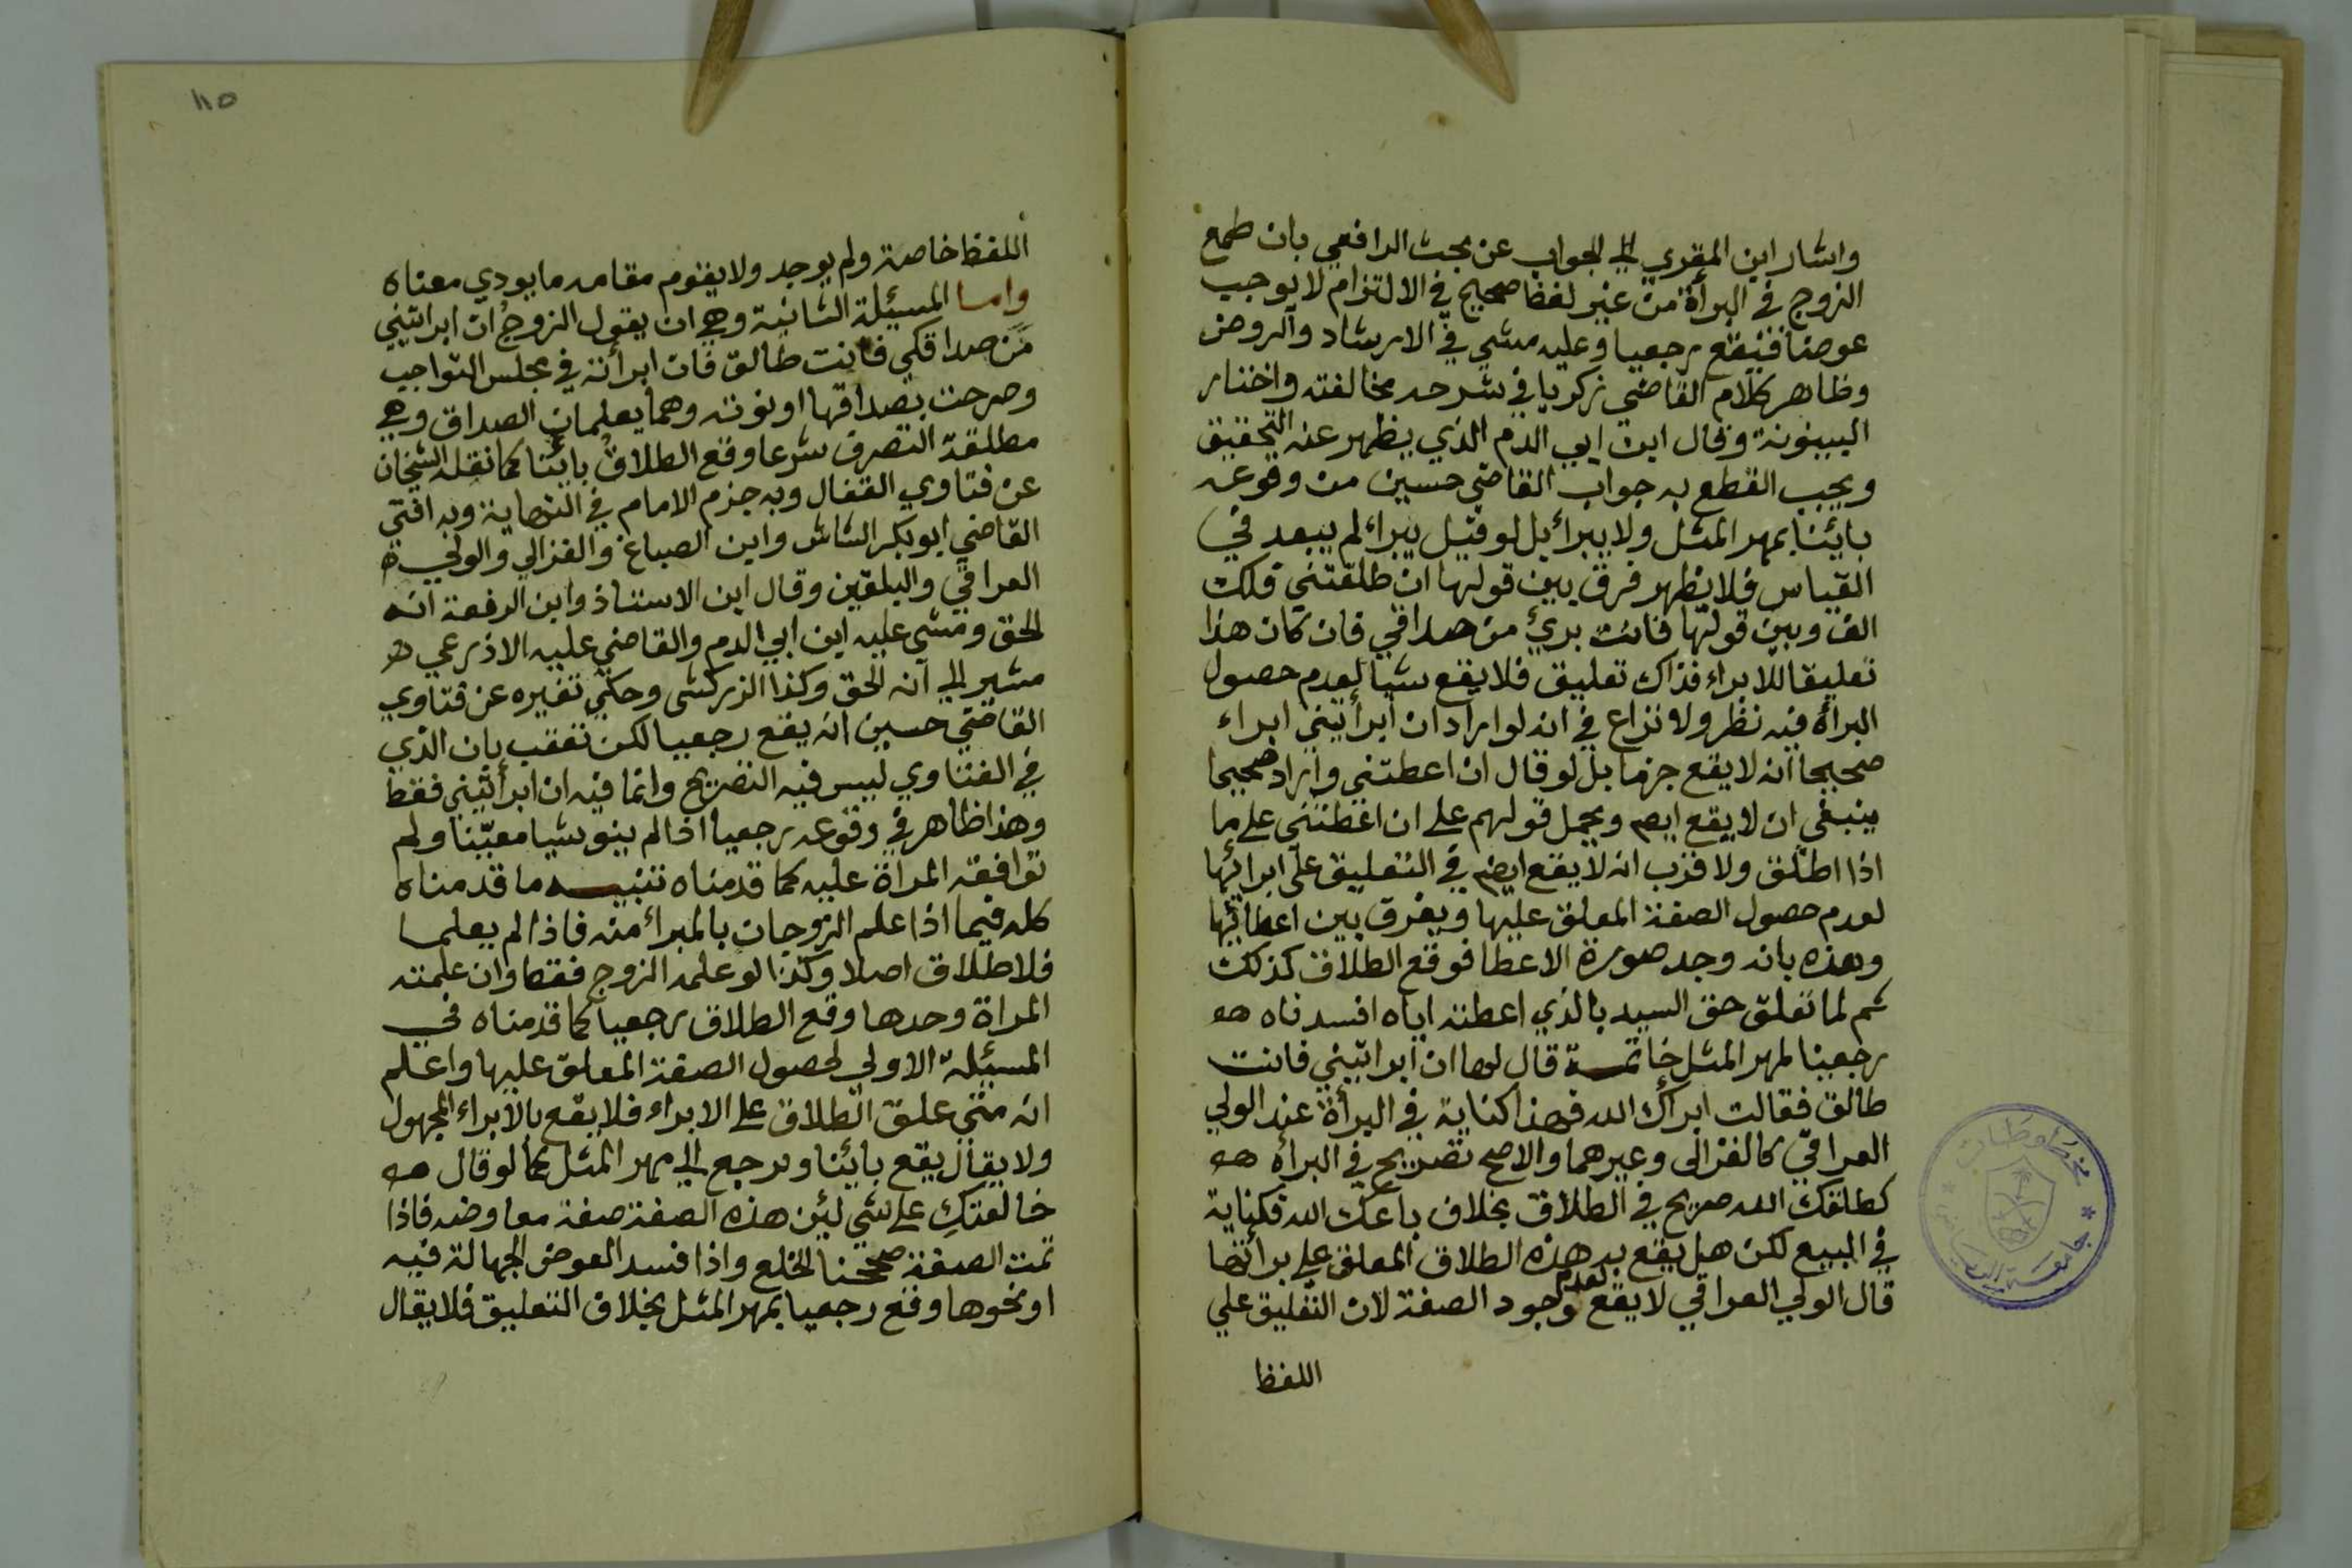 واشار ابن المقري الي الجواب عن بحث الرافعي بان طمع
الزوج في البرأة من غير لفظ صحيح في الالتزام لا يوجب
عوضا فيقع رجعيا وعليه مشي في الارشاد والروض
وظاهر كلام القاضي زكريا في شرحه مخالفته واختار
البينونة وقال ابن ابي الدم الذي يظهر عنه التحقيق
ويجب القطع به جواب القاضي حسين من وقوعه
بائنا بمهر المثل ولا يبرأ بل لو قيل يبراء لم يبعد في
القياس فلا يظهر فرق بين قولها ان طلقتني فلك
الف وبين قولها فانت بريء من صداقي فان كان هذا
تعليقا للابراء فذاك تعليق فلا يقع شيا لعدم حصول
البرأة فيه نظر ولا نزاع في انه لو اراد ان أبرأتيني ابراء
صحيحا انه لا يقع جزما بل لو قال ان اعطتني واراد صحيحا
ينبغي ان لا يقع ايضم ويحمل قولهم علي ان اعطتني علي ما
اذا اطلق ولا قرب انه لا يقع ايضم في التعليق علي ابرائها
لعدم حصول الصفة المعلق عليها ويفرق بين اعطائها
وهذه بانه وجد صورة الاعطا فوقع الطلاق كذلك
ثم لما تعلق حق السيد بالذي اعطته اياه افسدناه هه
رجعنا لمهر المثل خاتمة قال لها ان ابراتيني فانت
طالق فقالت ابرأك الله فهذا كناية في البرأة عند الولي
العراقي كالغزالى وغيرهما والاصح تصريح في البرأة هه
كطلقك الله صريح في الطلاق بخلاف باعك الله فكناية
في البيع لكن هل يقع بهذه الطلاق المعلق علي برأتها
قال الولي العراقي لا يقع لعدم وجود الصفة لان التعليق علي
اللفظ
١١٥
اللفظ خاصة ولم يوجد ولا يقوم مقامه ما يودي معناه
واما المسيئلة الثانية وهي ان يقول الزوج ان ابراتيني
من صداقكي فانت طالق فان ابرأته في مجلس التواجب
وصرحت بصداقها او نوته وهما يعلمان الصداق وهي
مطلقة التصرف شرعا وقع الطلاق بائنا كما نقله الشيخان
عن فتاوي القفال وبه جزم الامام في النهاية وبه افتي
القاضي ابو بكر الشاش وابن الصباغ والغزالي والولي
العراقي والبلقين وقال ابن الاستاذ وابن الرفعة انه
الحق ومشي عليه ابن ابي الدم والقاضي عليه الاذرعي هـ
مشير الي انه الحق وكذا الزركشى وحكي تغيره عن فتاوي
القاضي حسين انه يقع رجعيا لكن تعقب بان الذي
في الفتاوي ليس فيه التصريح وانما فيه ان ابرأتيني فقط
وهذا ظاهر في وقوعه رجعيا اذا لم ينو شيا معيّنا ولم
توافقه المراة عليه كما قدمناه تنبيه ما قدمناه
كله فيما اذا علم الزوجان بالمبرأ منه فاذا لم يعلما
فلا طلاق اصلا وكذا لو علمه الزوج فقط وان علمته
المراة وحدها وقع الطلاق رجعيا كما قدمناه في
المسيئلة الاولي لحصول الصفة المعلق عليها واعلم
انه متي علق الطلاق علي الابراء فلا يقع بالابراء المجهول
ولا يقال يقع بائنا ويرجع الي مهر المثل كما لو قال هه
خالعتكِ علي شي لئن هذه الصفة صفة معاوضه فاذا
تمت الصفة صححنا الخلع واذا فسد العوض لجهالة فيه
او نحوها وقع رجعيا بمهر المثل بخلاف التعليق فلا يقال